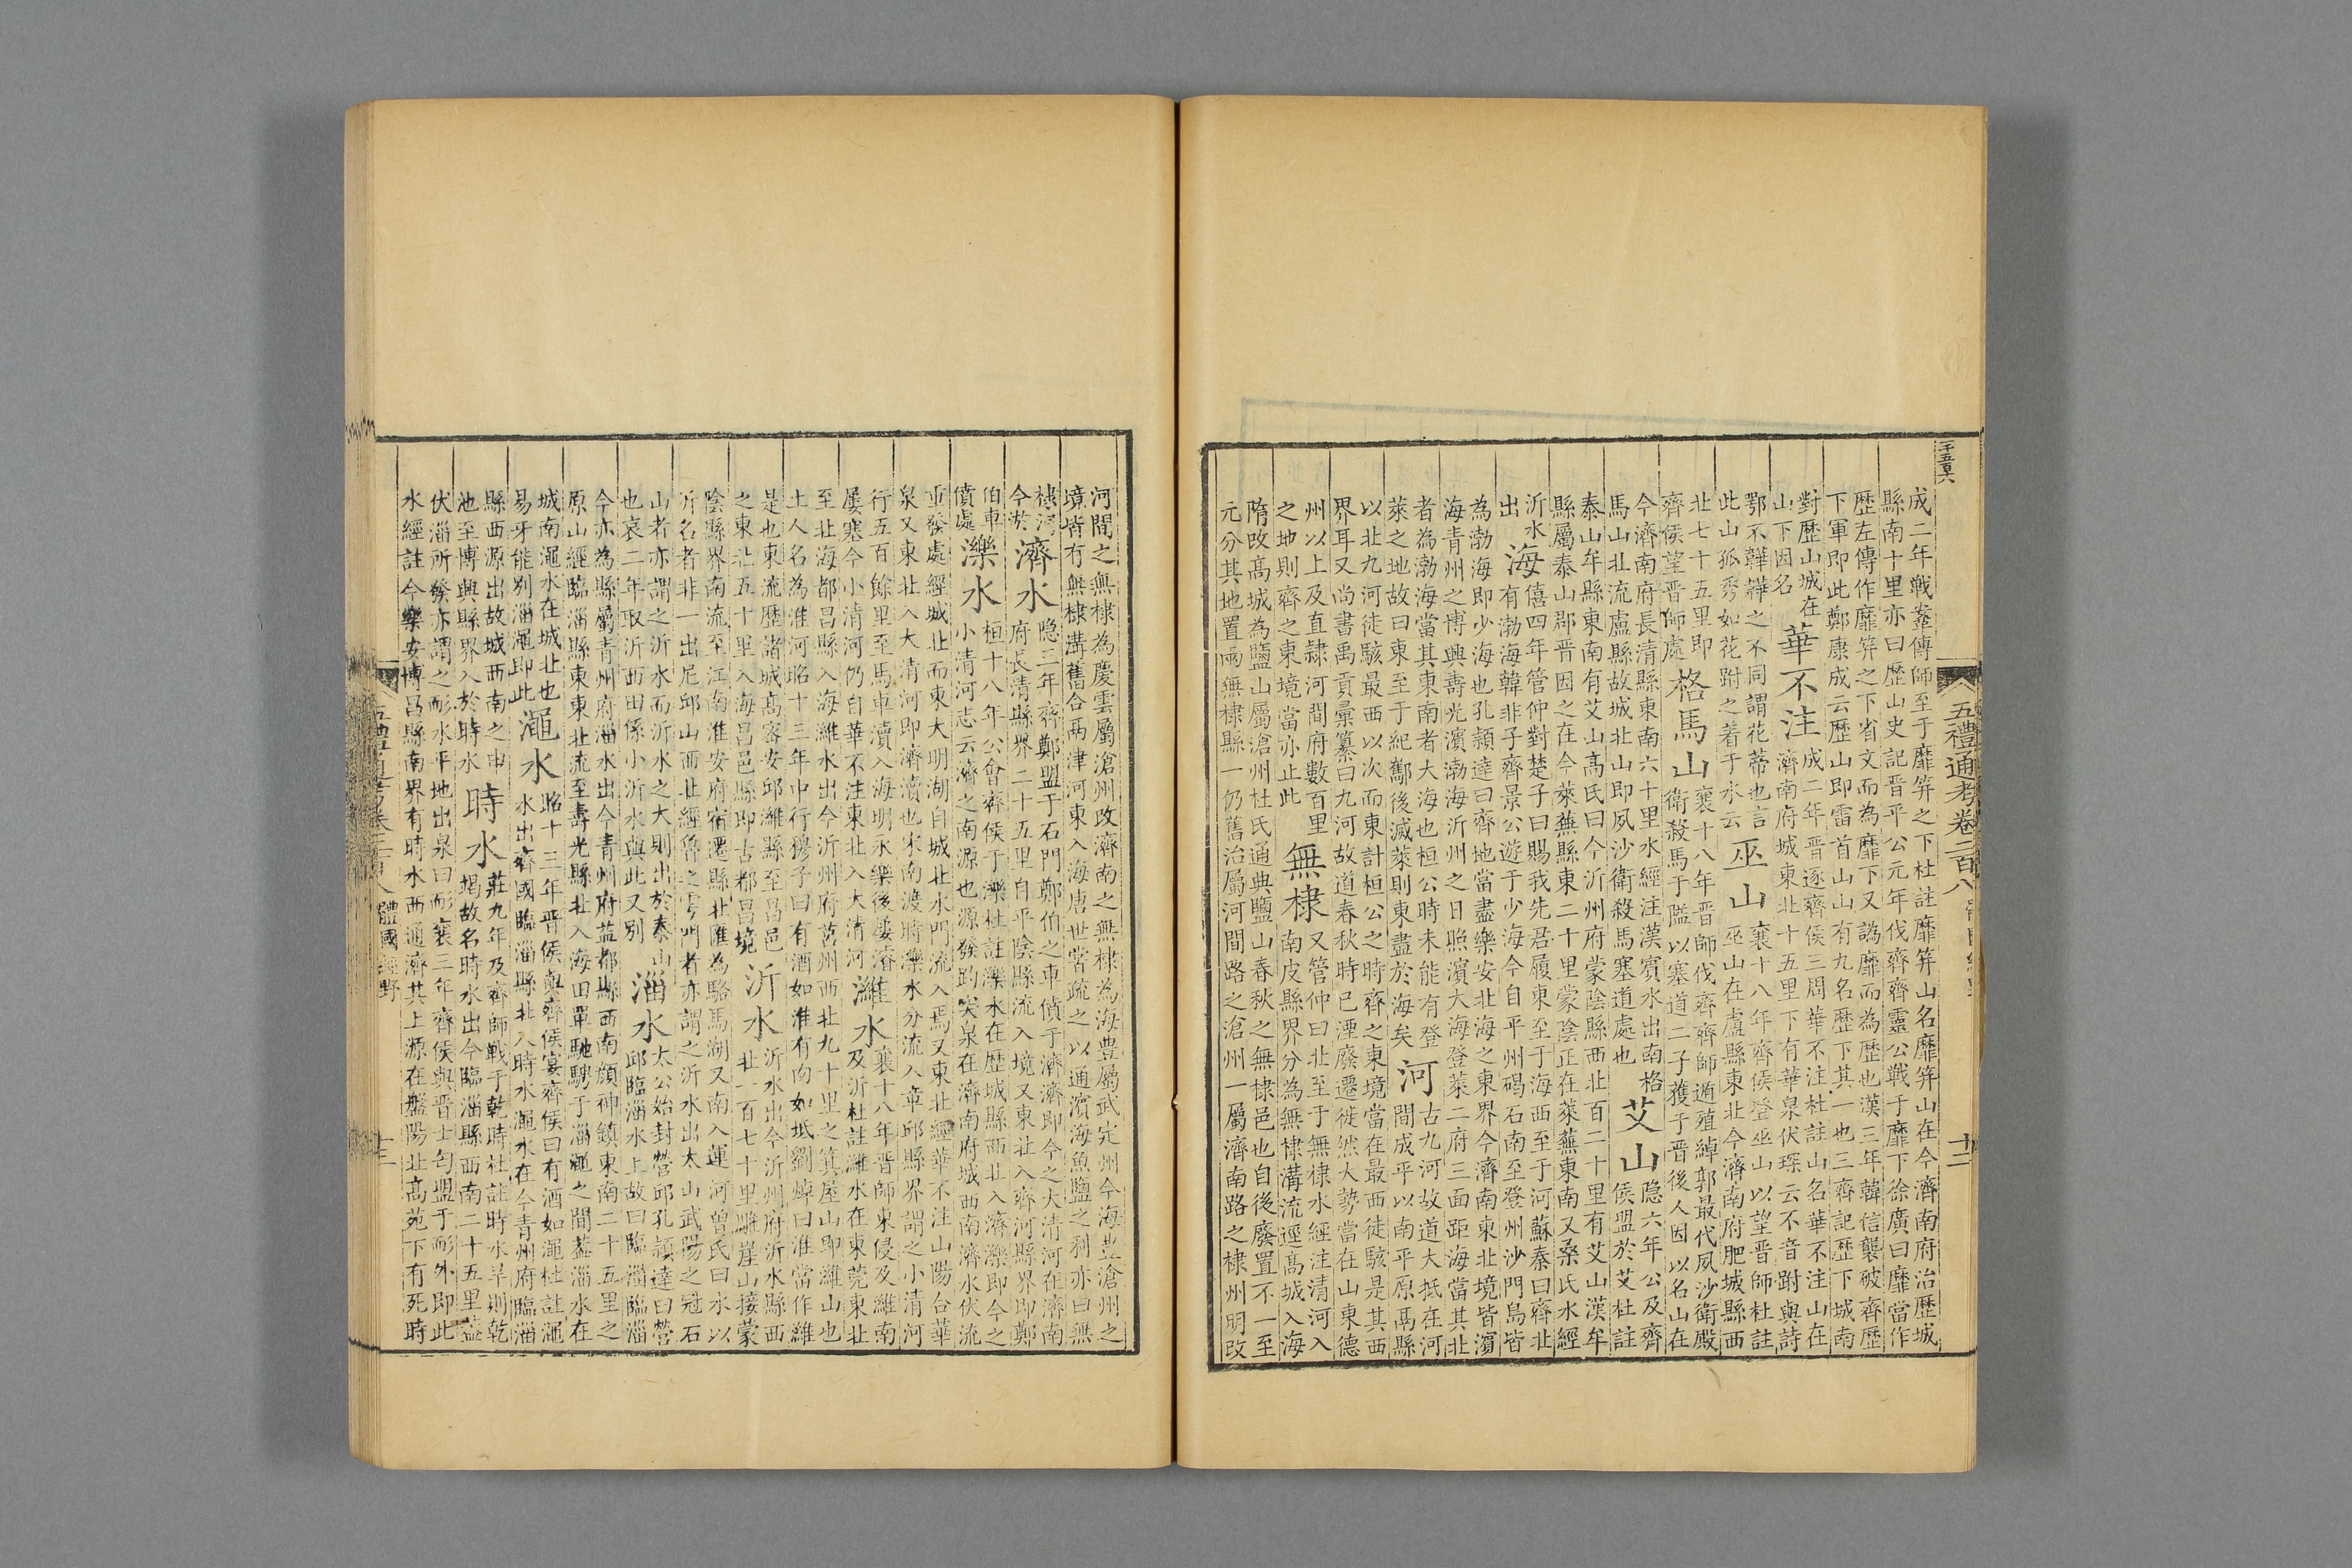 二千五百六
五禮通考卷二百八
十二
成二年戰鞌傳師至于靡筓之下杜註靡筓山名靡筓山在今濟南府治歷城
縣南十里亦曰歷山史記晉平公元年伐齊齊靈公戰于靡下徐廣曰靡當作
歷左傳作靡筓之下省文而為靡下又譌靡而為歷也漢三年韓信襲破齊歷
下軍即此鄭康成云歷山即雷首山山有九名歷下其一也三齊記歷下城南
對歷山城在
山下因名
華不注
成二年晉逐齊侯三周華不注杜註山名華不注山在
濟南府城東北十五里下有華泉伏琛云不音跗與詩
鄂不韡韡之不同謂花蒂也言
此山孤秀如花跗之着于水云
巫山
襄十八年齊侯登巫山以望晉師杜註
巫山在盧縣東北今濟南府肥城縣西
北七十五里即
齊侯望晉師處
格馬山
襄十八年晉師伐齊齊師遁殖綽郭最代夙沙衛殿
衛殺馬于隘以塞道二子獲于晉後人因以名山在
今濟南府長清縣東南六十里水經注漢賓水出南格
馬山北流盧縣故城北山即夙沙衛殺馬塞道處也
艾山
隐六年公及齊
侯盟於艾杜註
泰山牟縣東南有艾山高氏曰今沂州府蒙陰縣西北百二十里有艾山漢牟
縣屬泰山郡晉因之在今萊蕪縣東二十里蒙陰正在萊蕪東南又桑氏水經
沂水
出
海
僖四年管仲對楚子曰賜我先君履東至于海西至于河蘇秦曰齊北
有渤海韓非子齊景公遊于少海今自平州碣石南至登州沙門島皆
為渤海即少海也孔頴達曰齊地當盡樂安北海之東界今濟南東北境皆濱
海青州之博興壽光濱渤海沂州之日照濱大海登萊二府三面距海當其北
者為渤海當其東南者大海也桓公時未能有登
萊之地故曰東至于紀酅後滅萊則東盡於海矣
河
古九河故道大抵在河
間成平以南平原鬲縣
以北九河徒駭最西以次而東計桓公之時齊之東境當在最西徒駭是其西
界耳又尚書禹貢彙纂曰九河故道春秋時已湮廢遷徙然大勢當在山東德
州以上及直隸河間府數百里
之地則齊之東境當亦止此
無棣
又管仲曰北至于無棣水經注清河入
南皮縣界分為無棣溝流逕高城入海
隋改高城為鹽山屬滄州杜氏通典鹽山春秋之無棣邑也自後廢置不一至
元分其地置兩無棣縣一仍舊治屬河間路之滄州一屬濟南路之棣州明改
河間之無棣為慶雲屬滄州改濟南之無棣為海豊屬武定州今海豊滄州之
境皆有無棣溝舊合兩津河東入海唐世嘗疏之以通濱海魚鹽之利亦曰無
棣河
今淤
濟水
隐三年齊鄭盟于石門鄭伯之車僨于濟濟即今之大清河在濟南
府長清縣界二十五里自平陰縣流入境又東北入齊河縣界即鄭
伯車
僨處
濼水
桓十八年公會齊侯于濼杜註濼水在歷城縣西北入濟濼即今之
小清河志云濟之南源也源發趵突泉在濟南府城西南濟水伏流
重發處經城北而東大明湖自城北水門流入焉又東北經華不注山陽合華
泉又東北入大清河即濟瀆也宋南渡時濼水分流入章邱縣界謂之小清河
行五百餘里至馬車瀆入海明永樂後屢濬
屢塞今小清河仍自華不注東北入大清河
濰水
襄十八年晉師東侵及濰南
及沂杜註濰水在東莞東北
至北海都昌縣入海濰水出今沂州府莒州西北九十里之箕屋山即濰山也
土人名為淮河昭十三年中行穆子曰有酒如淮有肉如坻劉焯曰淮當作濰
是也東流歷諸城高密安邱濰縣至昌邑
之東北五十里入海昌邑縣即古都昌境
沂水
沂水出今沂州府沂水縣西
北一百七十里雕崖山接蒙
陰縣界南流至江南淮安府宿遷縣北匯為駱馬湖又南入運河曾氏曰水以
沂名者非一出尼邱山西北經魯之雩門者亦謂之沂水出太山武陽之冠石
山者亦謂之沂水而沂水之大則出於泰山
也哀二年取沂西田係小沂水與此又別
淄水
太公始封營邱孔頴達曰營
邱臨淄水上故曰臨淄臨淄
今亦為縣屬青州府淄水出今青州府益都縣西南顏神鎮東南二十五里之
原山經臨淄縣東東北流至壽光縣北入海田單馳騁于淄澠之間葢淄水在
城南澠水在城北也
易牙能别淄澠即此
澠水
昭十三年晉侯與齊侯宴齊侯曰有酒如澠杜註澠
水出齊國臨淄縣北入時水澠水在今青州府臨淄
縣西源出故城西南之申
池至博興縣界入於時水
時水
莊九年及齊師戰于乾時杜註時水旱則乾
竭故名時水出今臨淄縣西南二十五里葢
伏淄所發亦謂之耏水平地出泉曰耏襄三年齊侯與晉士匄盟于耏外即此
水經註今樂安博昌縣南界有時水西通濟其上源在盤陽北高苑下有死時
體國經野
十二